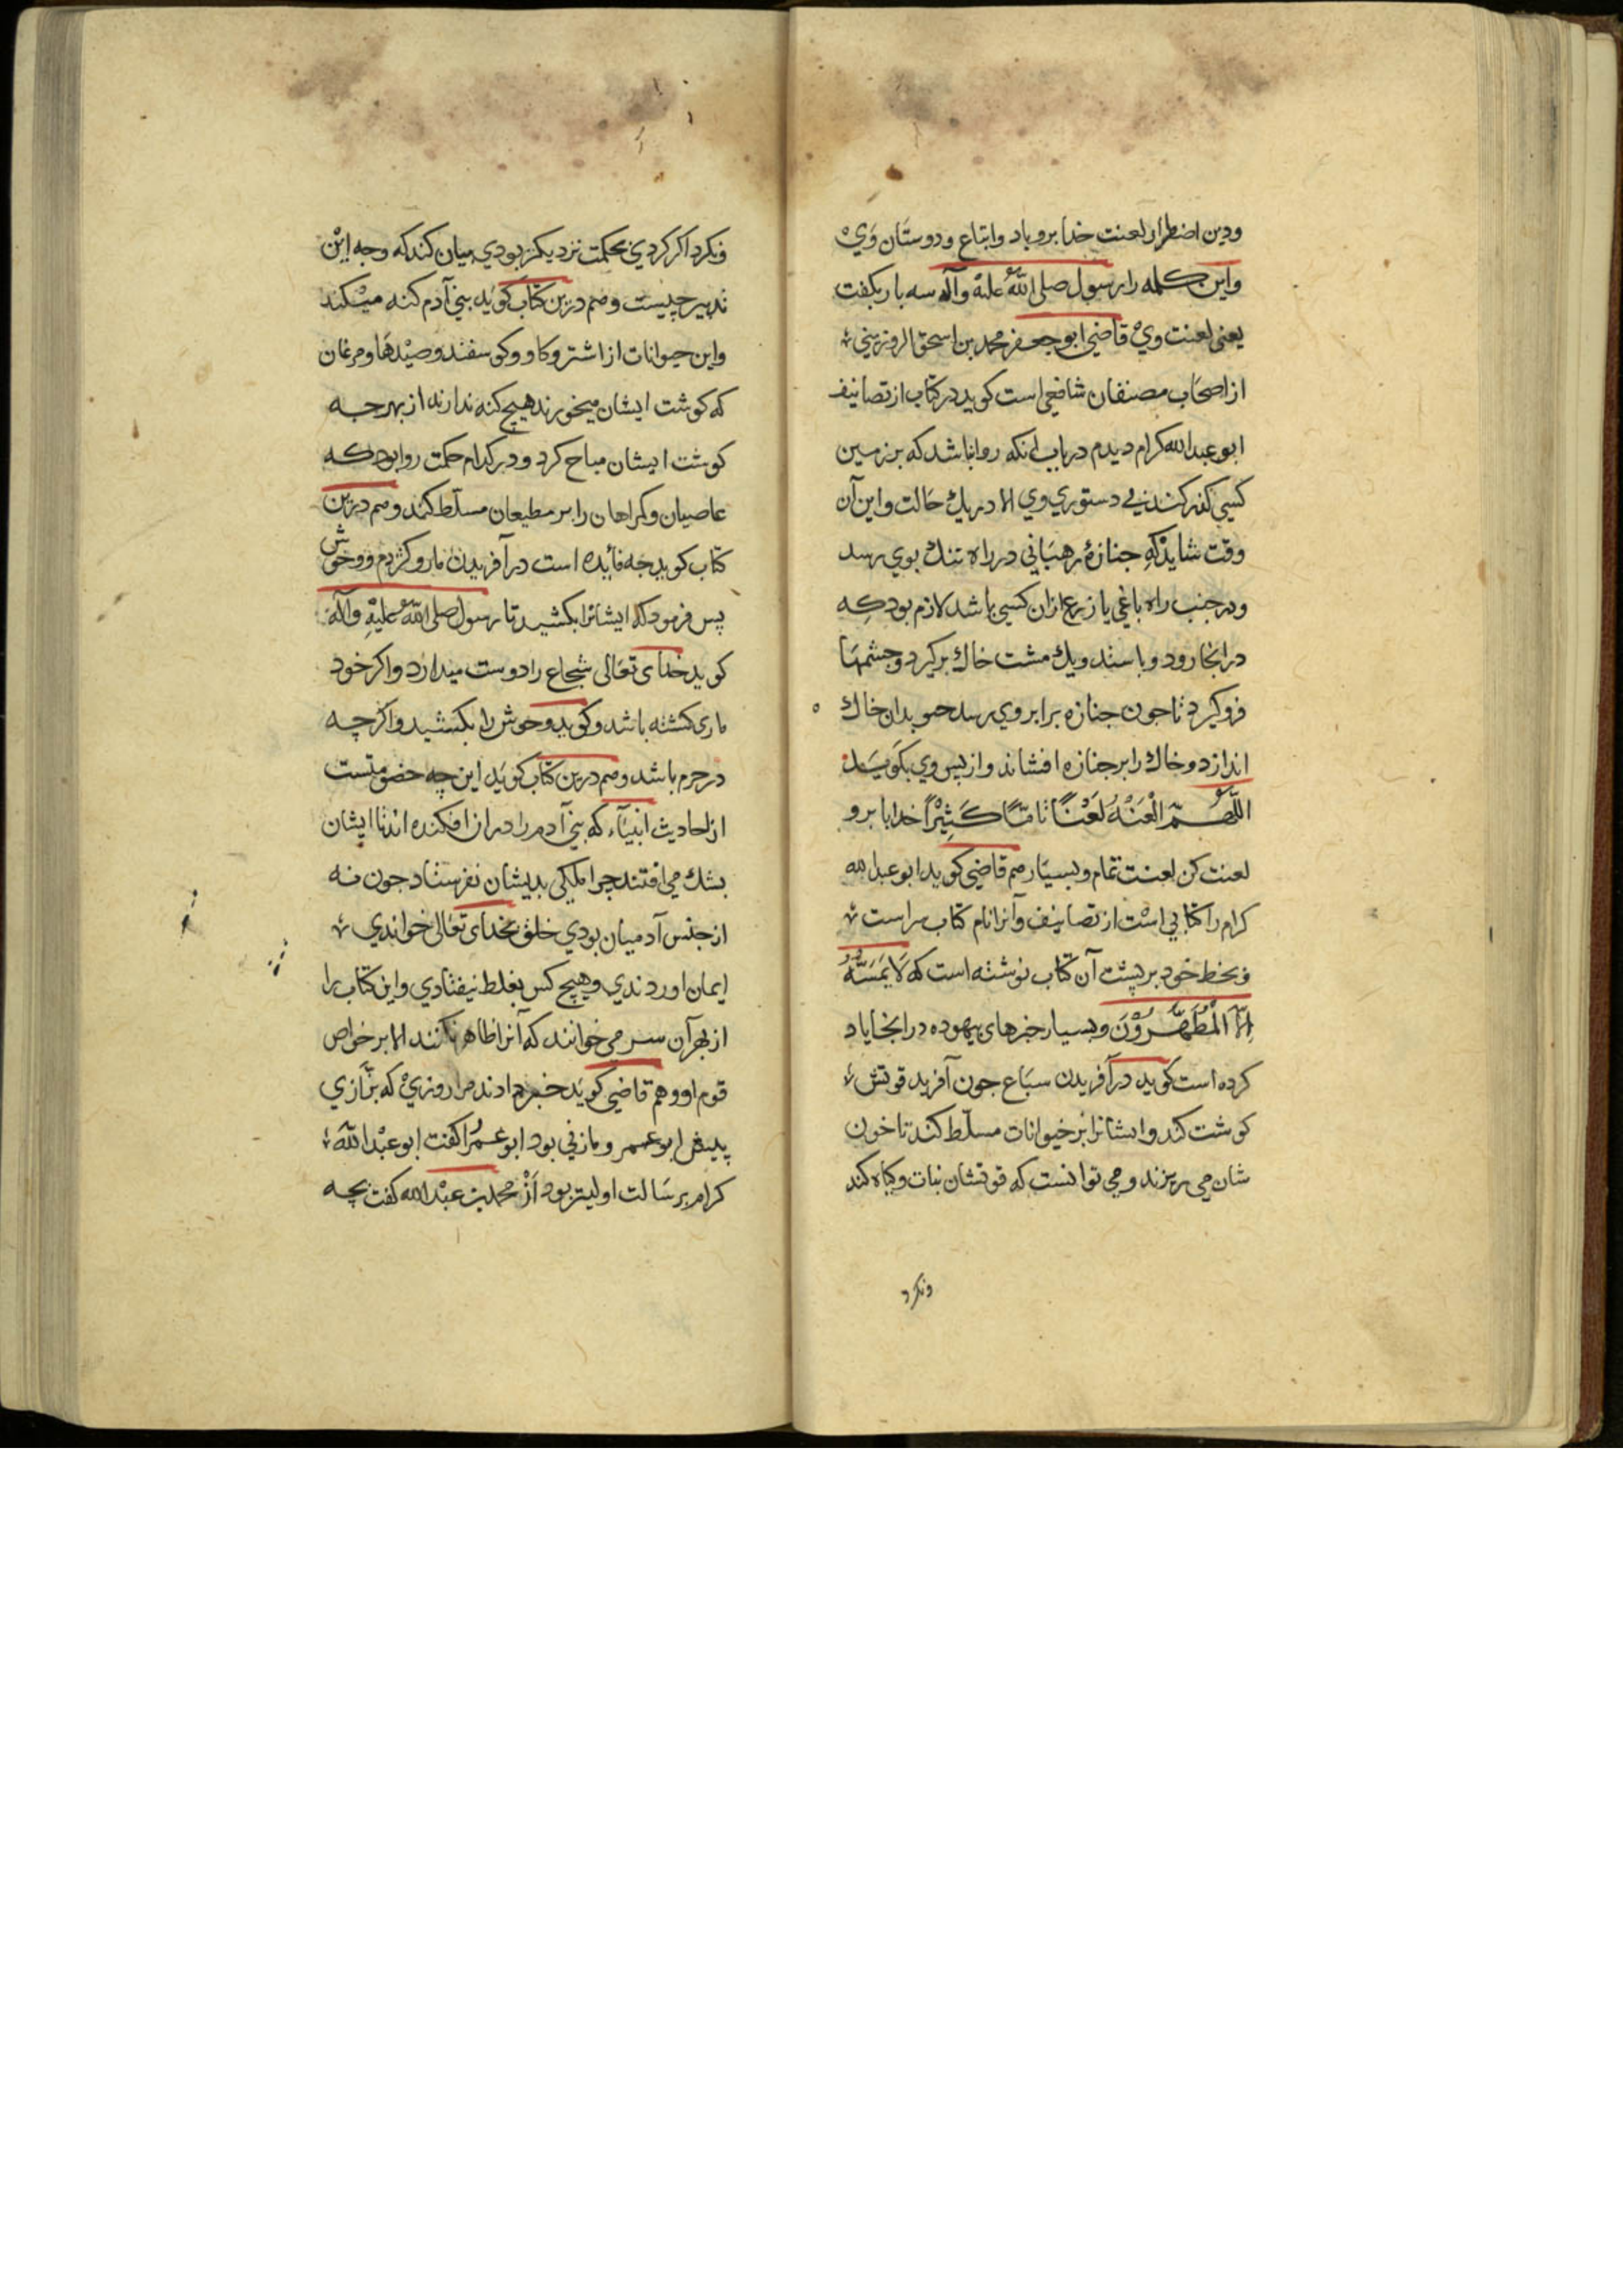 ودین اضطرار لعنت خدا برو باد واتباع ودوستان وَيْ
واین کلمه را رسول صلى اللّٰه علیه وآله سه بار بکفت
یعنی لعنت ويْ قاضي ابو جعفر محمد بن اسحق الزوزني
از اصحاب مصنفان شافعی است کوید در کتاب از تصانیف
ابو عبدالله کرام دیدم در باب انکه روا نباشد که بر زمین
کسی کند بي دستوري وي الا در یك حالت واین آن
وقت شاید کهِ جنازهٔ رهبَاني در راه تنك بوي رسد
ودر جنب راه باغي یا زرع ازان کسي باشد لازم بود که
در انجا رود وباستد ویك مشت خاك برکیرد وچشمهَا
فروکیرد تا جون جنازه برابر وي رسد بدان خاك
اندازد وخاك را بر جنازه افشاند واز پس وي بکوَیَد
اللّٰهُمَّ الْعَنْهُ لَعْنًا تامًّا كَثِيْرًا خدایا برو
لعنت کن لعنت تمام وبسیَار وهم قاضي کوید ابو عبدالله
کرام را کتابي اسْت از تصانیف وآنرا نام کتاب سر است
وبخط خود بر پشت آن کتاب نوشته است که لَا يَمَسُّهُ
اِلَّا الْمُطَهَّرُوْنَ وبسیار خبرهاى بیهوده در انجا یاد
کرده است کوید در آفریدن سبَاع جون آفرید قوتش
کوشت کند وایشانرا بر حیوانات مسلّط کند تا خون
شان مي ریزند ومي توانست که قوتشان نبات وکیاه کند
ونکرد
ونکرد اکر کردي بحکمت نزدیکتر بودي بیان کند که وجه اینْ
تدبیر چیست وهم درین کتاب کویَد بنی آدم کنه میْکند
واین حیوانات از اشتر وکاو وکوسفند وصیْدهَا ومرغان
که کوشت ایشان میخورند هیچ کنه ندارند از بهر چه
کوشت ایشان مباح کرد ودر کدام حکمت روا بود که
عاصیان وکمراهان را بر مطیعان مسلّط کند وهم درین
کتاب کوید چه فائده است در آفریدن مار وکژدم ووحوش
پس فرمود که ایشانرا بکشید تا رسول صلى اللّٰه علیْهِ وآله
کوید خداى تعَالى شجاع را دوست میدارد واکر خود
مارى کشته باشد وکوید وحوش را بکشید واکر چه
در حرم باشد وهم درین کتاب کویَد این چه خصومتست
از احادیث انبیَآء که بني آدم را دران افکنده اند تا ایشان
بشك مي افتند چرا ملکي بدیشان نفرستاد جون نه
از جنس آدمیان بودي خلق بخداى تعَالى خواندي
ایمان اوردندي وهیچ کس بغلط نیفتادي واین کتاب را
از بهر آن سر مي خوانند که آنرا ظاهر نکنند الا بر خواص
قوم او وهم قاضي کویَد خبر دادند مرا روزيْ که بزّازي
پیش ابو عمرو مازني بود ابو عمرُو را کفت ابو عبْدالله
کرام برسَالت اولیتر بود اَزْ محمد بن عبْدالله کفت بچه